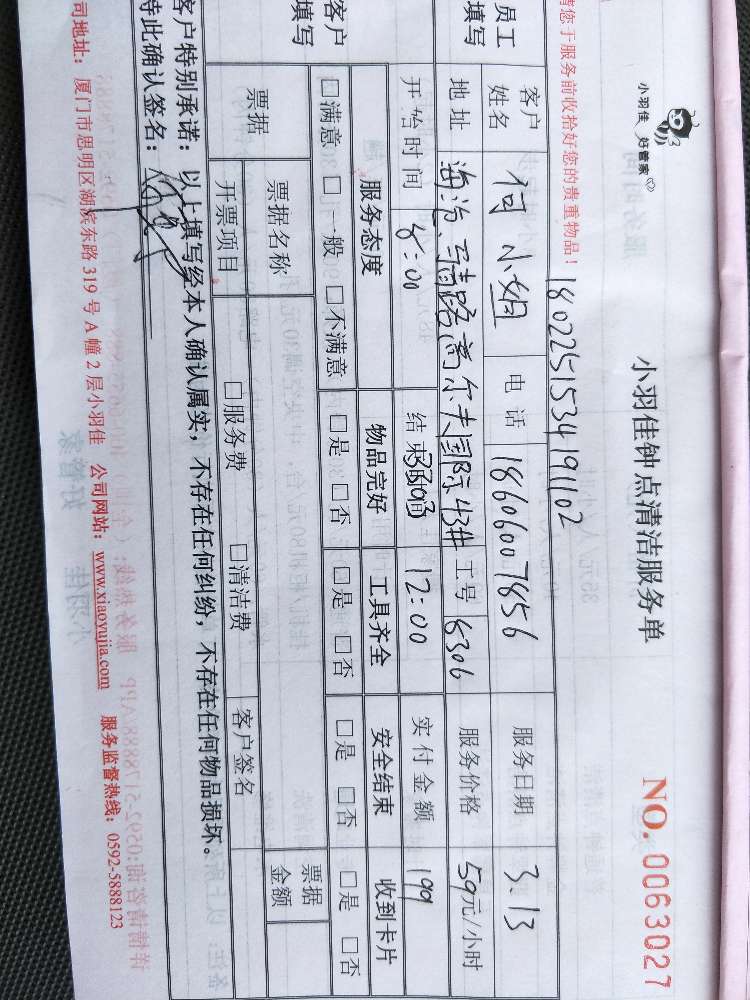 小羽佳 好管家
小羽佳钟点清洁服务单
NO. 0063027
请您于服务前收拾好您的贵重物品！
1802251534191102
员工填写
客户姓名 何小姐 电话 18606007856 服务日期 3.13
地址 海沧、马青路高尔夫国际43# 工号 8306 服务价格 59元/小时
开始时间 8:00 结束时间 12:00 实付金额 199
客户填写
服务态度 物品完好 工具齐全 安全结束 收到卡片
□满意 □一般 □不满意 □是 □否 □是 □否 □是 □否 □是 □否
票据 票据名称 票据金额
开票项目 □服务费 □清洁费 客户签名
客户特别承诺：以上填写经本人确认属实，不存在任何纠纷，不存在任何物品损坏。
特此确认签名：
司地址：厦门市思明区湖滨东路 319 号 A 幢 2 层小羽佳 公司网站：www.xiaoyujia.com 服务监督热线：0592-5888123